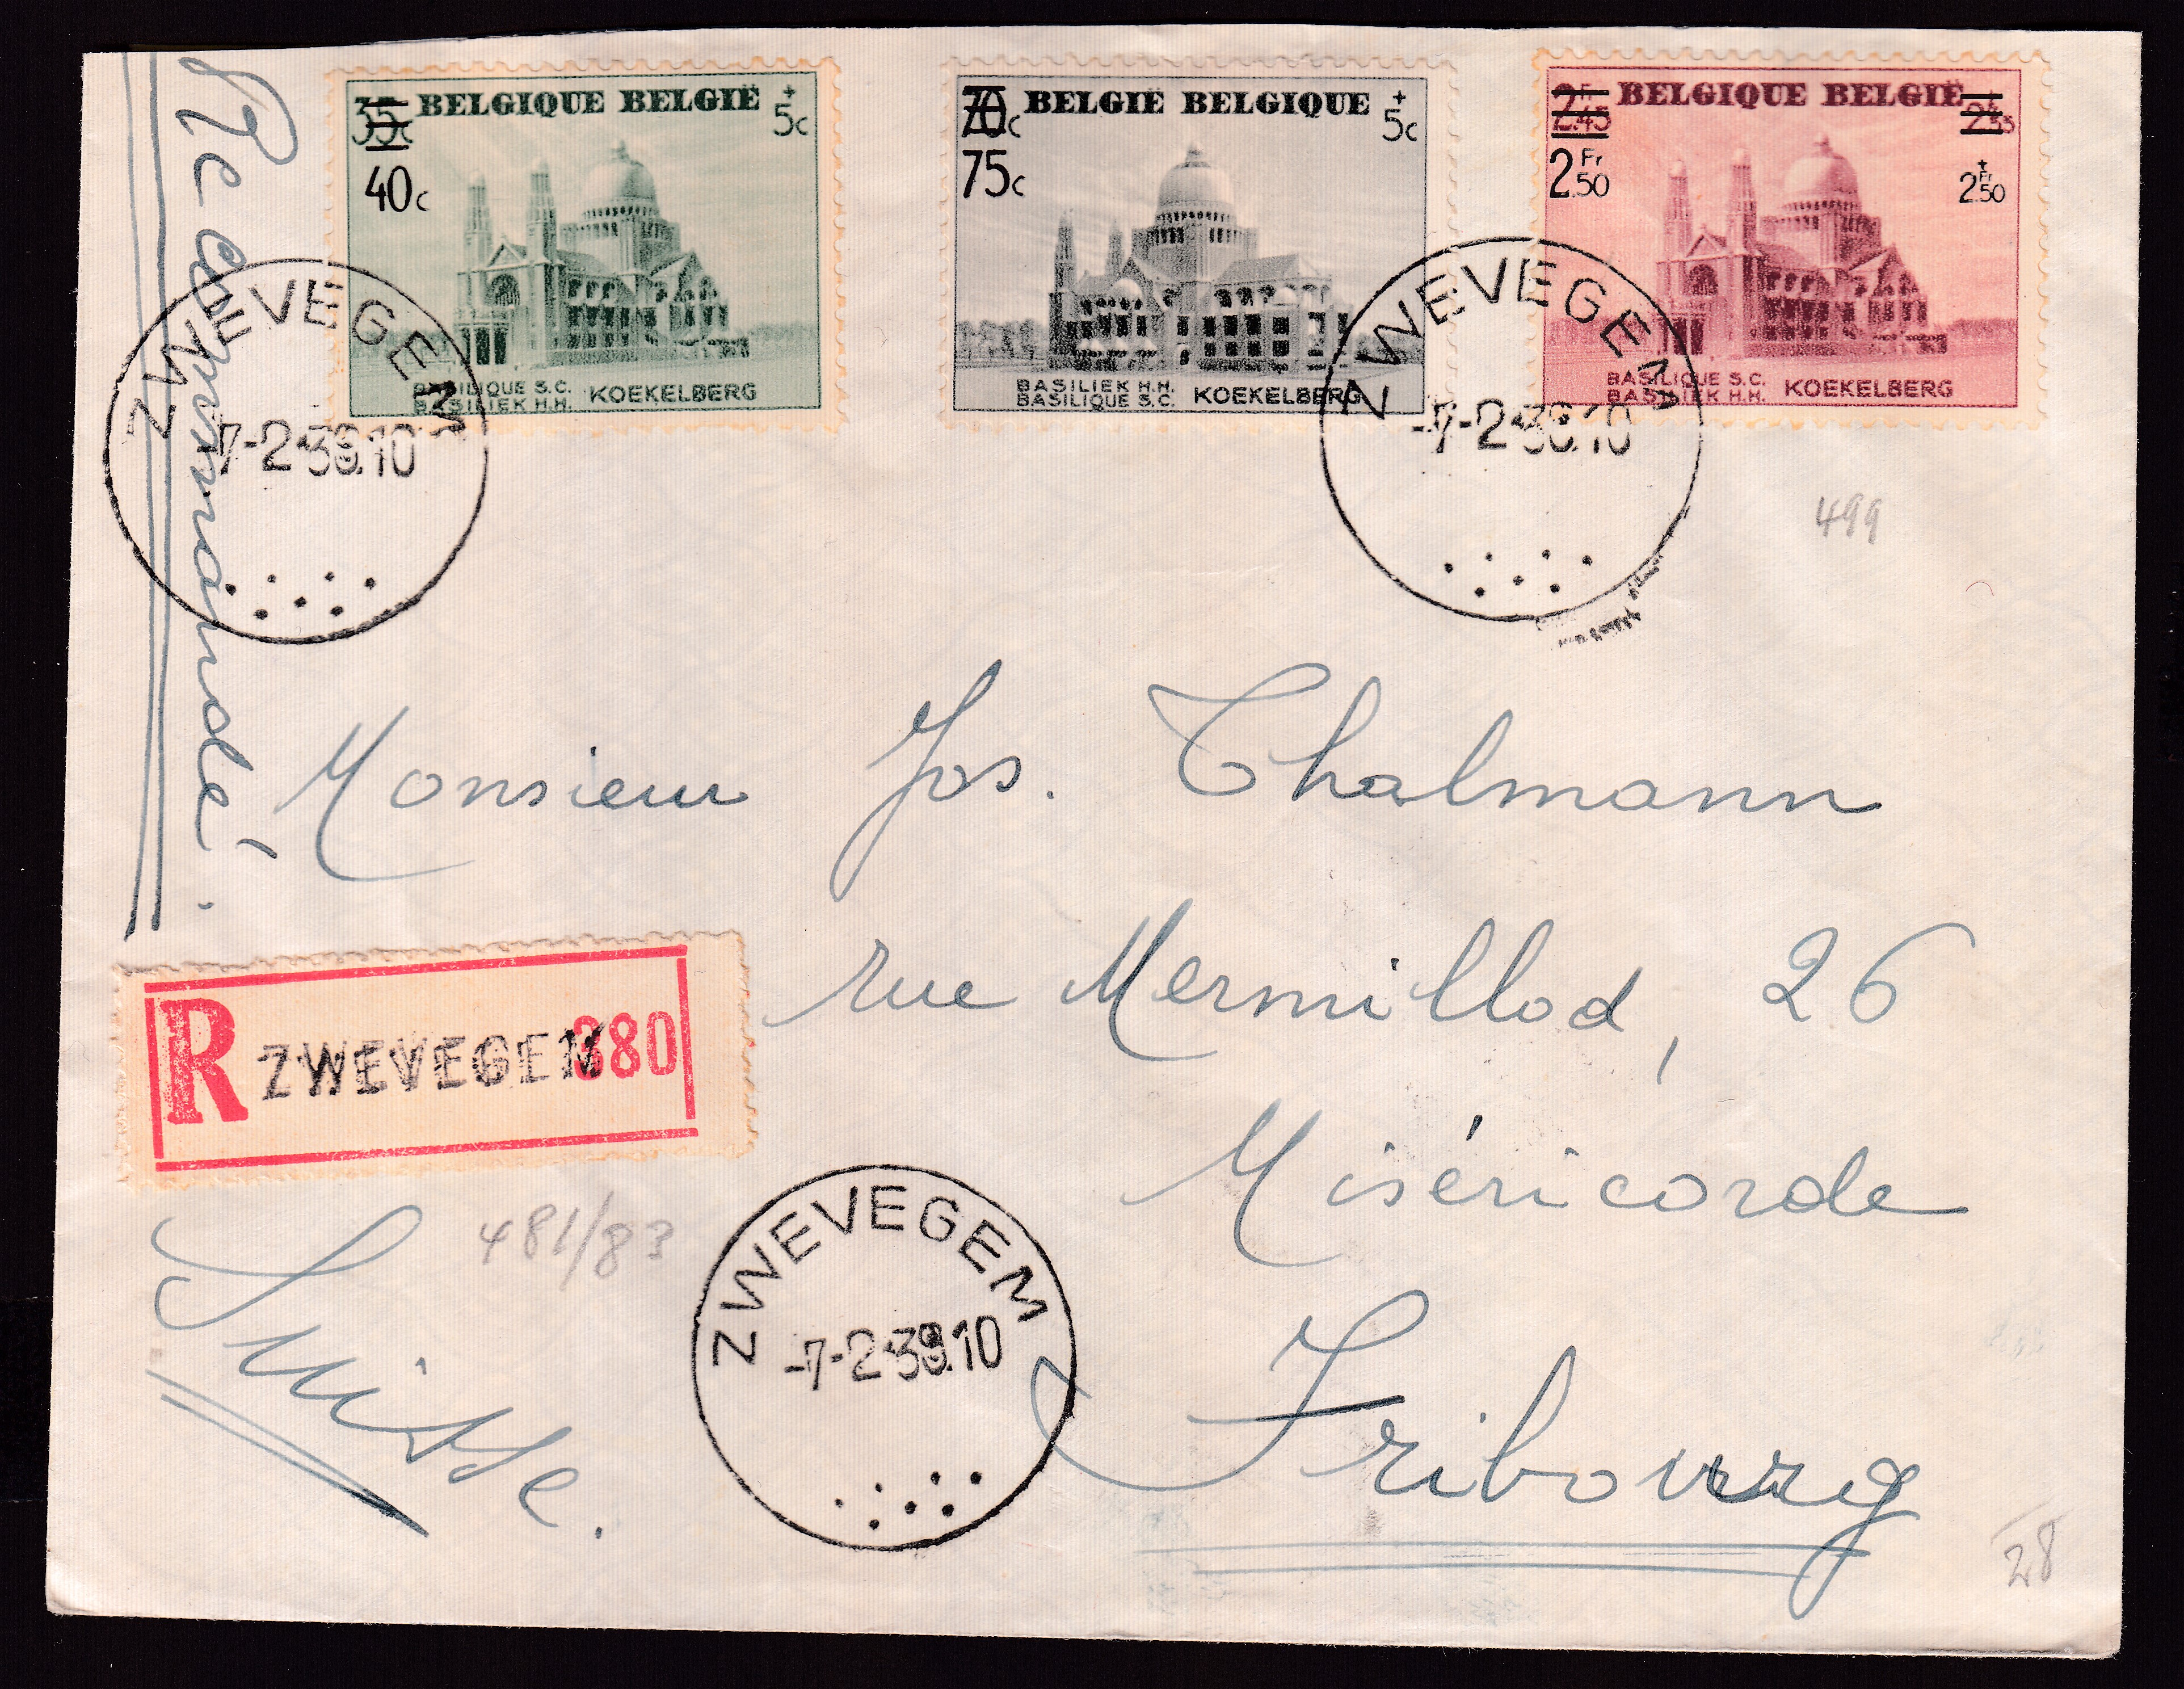 Recommandé.
35c BELGIQUE BELGIË + 5c
40c
BASILIQUE S.C. KOEKELBERG
BASILIEK H.H.
70c BELGIË BELGIQUE + 5c
75c
BASILIEK H.H. KOEKELBERG
BASILIQUE S.C.
2Fr.45 BELGIQUE BELGIË
2Fr.50 + 2Fr.50
BASILIQUE S.C. KOEKELBERG
BASILIEK H.H.
ZWEVEGEM
-7-2-39.10
ZWEVEGEM
-7-2-39.10
499
Monsieur Jos. Thalmann
rue Mermillod, 26
Miséricorde
Fribourg
R ZWEVEGEM 380
481/83
Suisse.
ZWEVEGEM
-7-2-39.10
28